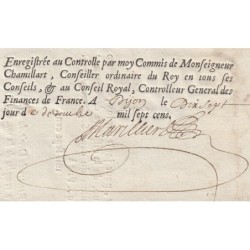 Enregistrée au Controlle par moy Commis de Monseigneur
Chamillart, Conseiller ordinaire du Roy en tous ses
Conseils, & au Conseil Royal, Controlleur General des
Finances de France. A Dijon le Dix sept
jour de decembre mil sept cens.